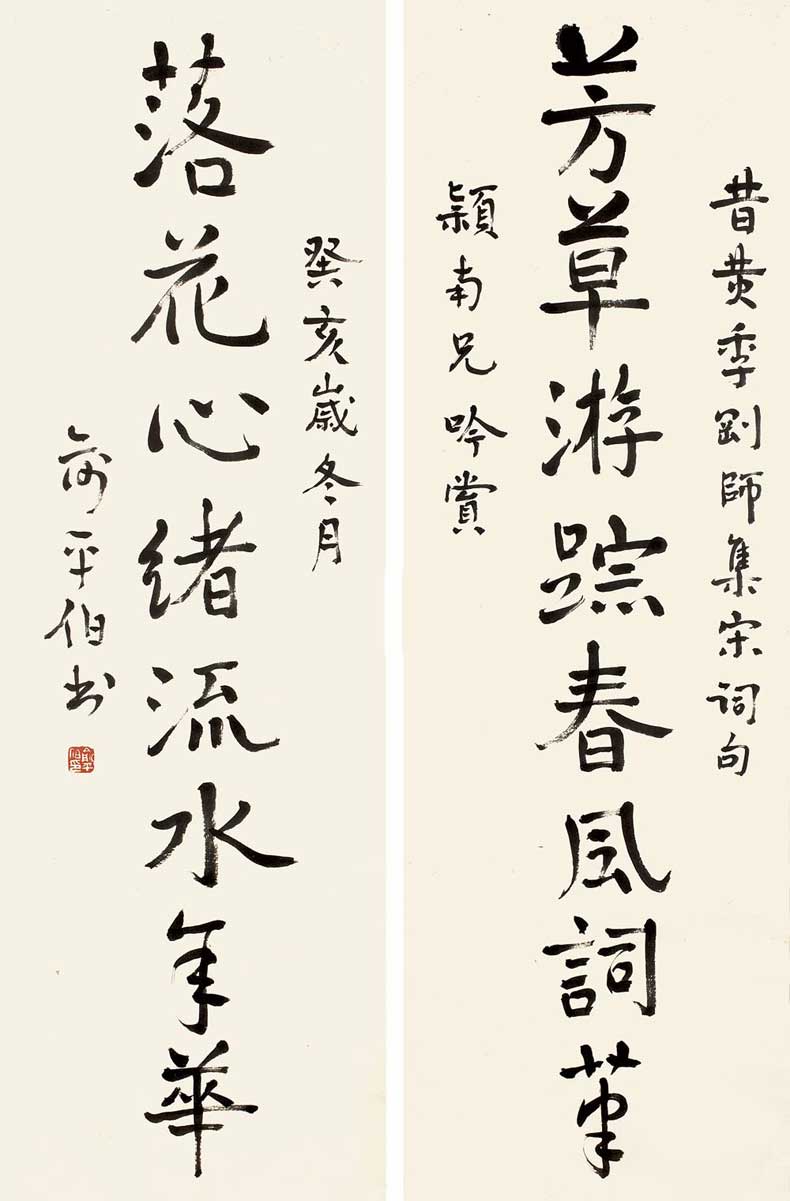 昔黄季剛師集宋詞句
芳草游踪春風詞筆
穎南兄吟賞
癸亥歲冬月
落花心緒流水年華
俞平伯书
俞平伯印